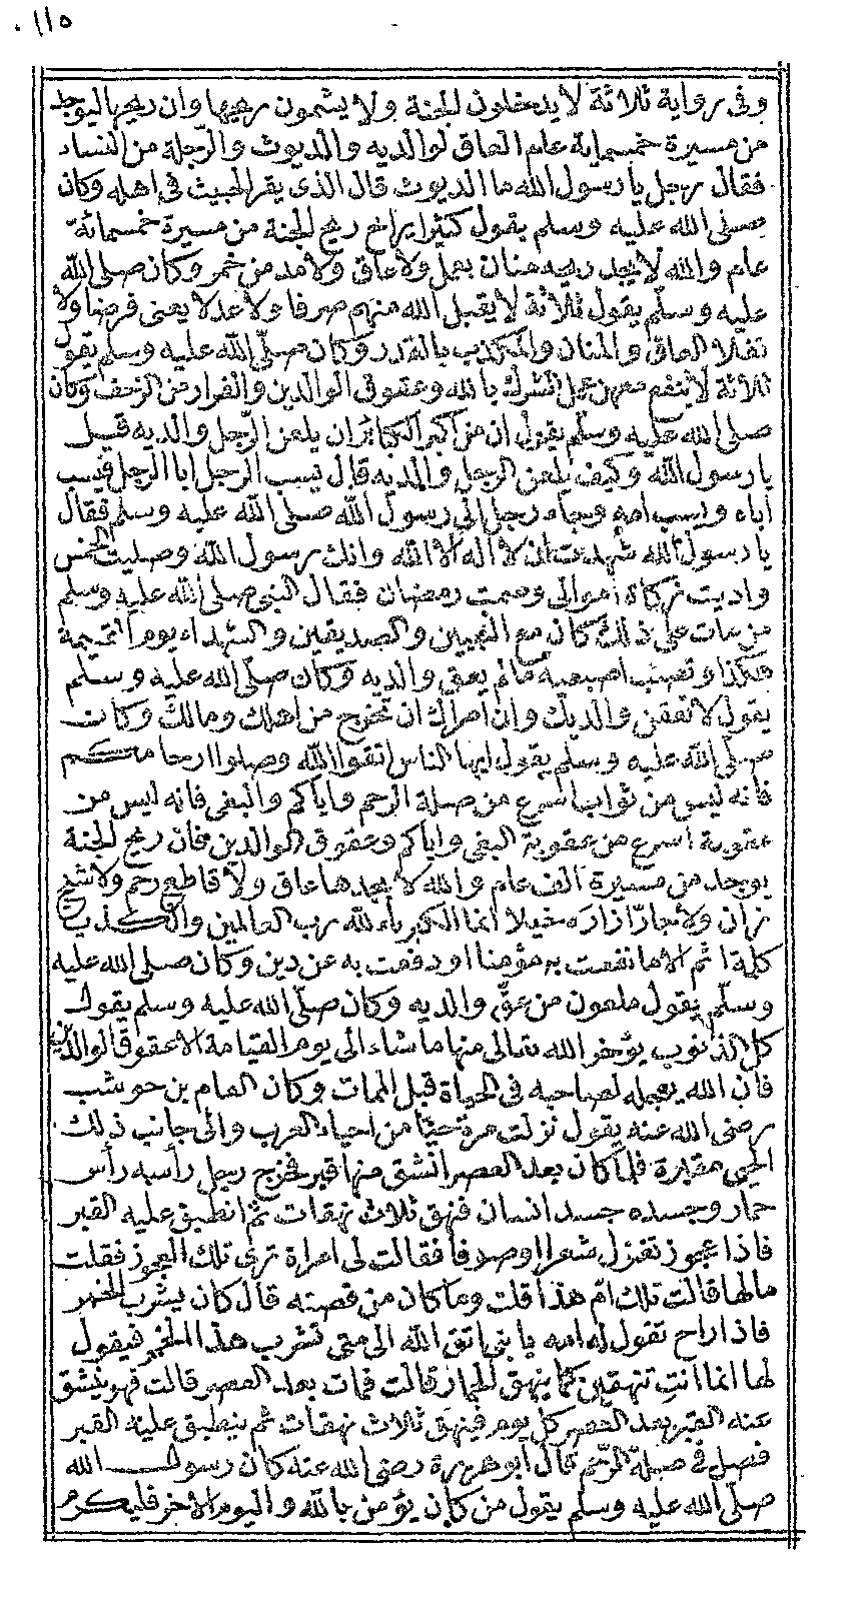 ١١٥
وفى رواية ثلاثة لا يدخلون الجنة ولا يشمون ريحها وان ريحها ليوجد
من مسيرة خمسماية عام العاق لوالديه والديوث والرجلة من النساء
فقال رجل يا رسول الله ما الديوث قال الذى يقر الخبيث فى اهله وكان
صلى الله عليه وسلم يقول كثيرا يراح ريح الجنة من مسيرة خمسمائة
عام والله لا يجد ريحه منان بعمل ولا عاق ولا مدمن خمر وكان صلى الله
عليه وسلم يقول ثلاثة لا يقبل الله منهم صرفا ولا عدلا يعنى فرضا ولا
نفلا العاق والمنان والمكذب بالقدر وكان صلى الله عليه وسلم يقول
ثلاثة لا ينفع معهن عمل الشرك بالله وعقوق الوالدين والفرار من الزحف وكان
صلى الله عليه وسلم يقول ان من اكبر الكبائر ان يلعن الرجل والديه قيل
يا رسول الله وكيف يلعن الرجل والديه قال يسب الرجل ابا الرجل فيسب
اباه ويسب امه وجاء رجل الى رسول الله صلى الله عليه وسلم فقال
يا رسول الله شهدت ان لا اله الا الله وانك رسول الله وصليت الخمس
واديت زكاة اموالى وصمت رمضان فقال النبى صلى الله عليه وسلم
من مات على ذلك كان مع النبيين والصديقين والشهداء يوم القيمة
هكذا ونصب اصبعيه مالم يعق والديه وكان صلى الله عليه وسلم
يقول لا تعقن والديك وان امراك ان تخرج من اهلك ومالك وكان
صلى الله عليه وسلم يقول ايها الناس اتقوا الله وصلوا ارحامكم
فانه ليس من ثواب اسرع من صلة الرحم واياكم والبغى فانه ليس من
عقوبة اسرع من عقوبة البغى واياكم وعقوق الوالدين فان ريح الجنة
يوجد من مسيرة الف عام والله لا يجدها عاق ولا قاطع رحم ولا شيخ
زان ولا جار ازاره خيلا انما الكبرياء لله رب العالمين والكذب
كلة اثم الا ما نفعت به مؤمنا او دفعت به عن دين وكان صلى الله عليه
وسلم يقول ملعون من عق والديه وكان صلى الله عليه وسلم يقول
كل الذنوب يؤخر الله تعالى منها ما شاء الى يوم القيامة الا عقوق الوالدين
فان الله يعجله لصاحبه فى الحياة قبل الممات وكان العوام بن حوشب
رضى الله عنه يقول نزلت مرة حيا من احياء العرب والى جانب ذلك
الحى مقبرة فلما كان بعد العصر انشق منها قبر فخرج رجل رأسه رأس
حمار وجسده جسد انسان فنهق ثلاث نهقات ثم انطبق عليه القبر
فاذا عجوز تغزل شعرا اوصوفا فقالت لى امراة ترى تلك العجوز فقلت
مالها قالت تلك ام هذا قلت وما كان من قصته قال كان يشرب الخمر
فاذا راح تقول له امه يا بنى اتق الله الى متى تشرب هذا الخمر فيقول
لها انما انت تنهقين كما ينهق الحمار قالت فمات بعد العصر قالت فهو ينشق
عنه القبر بعد العصر كل يوم فينهق ثلاث نهقات ثم ينطبق عليه القبر
فصل فى صلة الرحم قال ابو هريرة رضى الله عنه كان رسول الله
صلى الله عليه وسلم يقول من كان يؤمن بالله واليوم الاخر فليكرم